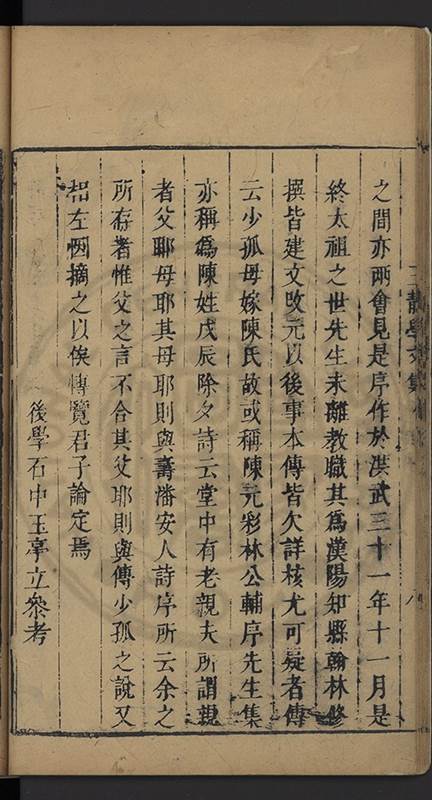 之間亦兩會見是序作於洪武三十一年十一月是
終太祖之世先生未離教職其為漢陽知縣翰林修
撰皆建文改元以後事本傳皆欠詳核尤可疑者傳
云少孤母嫁陳氏故或稱陳元彩林公輔序先生集
亦稱為陳姓戊辰除夕詩云堂中有老親夫所謂親
者父耶母耶其母耶則與壽潘安人詩序所云余之
所存者惟父之言不合其父耶則與傳少孤之說又
相左因摘之以俟博覽君子論定焉
後學石中玉亭立參考